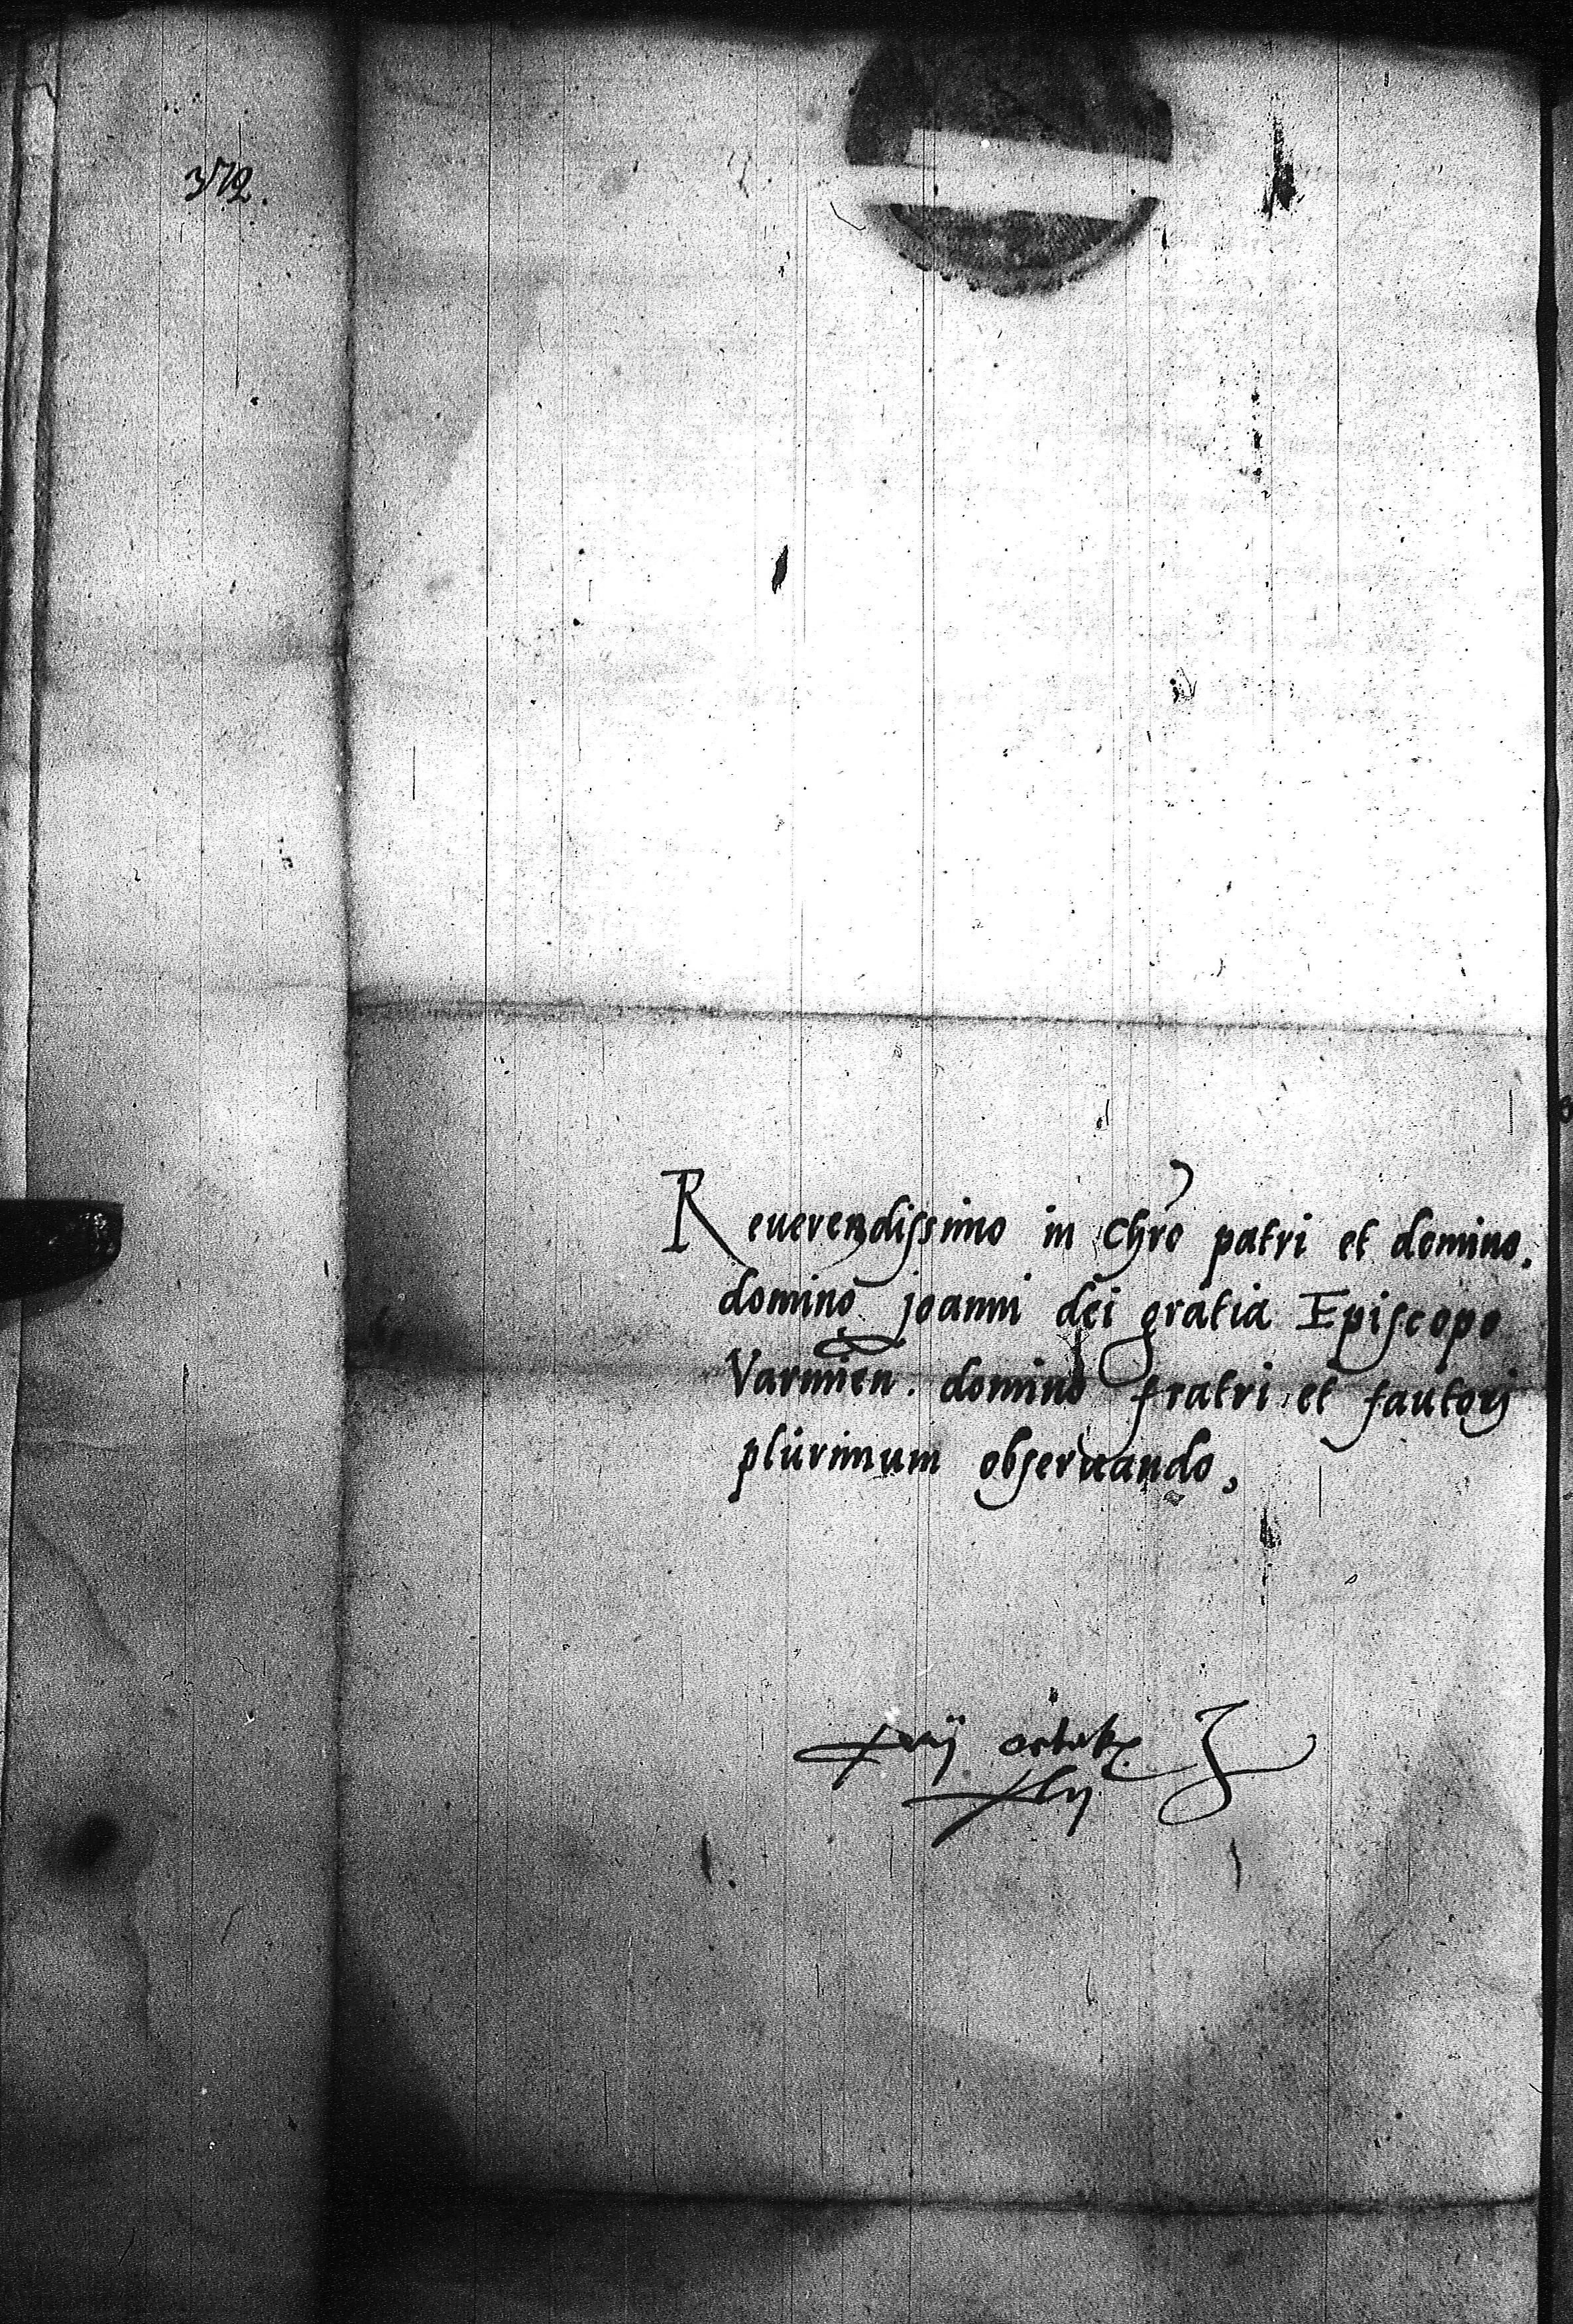 372.
Reuerendissimo in Chro patri et domino.
domino joanni dei gratia Episcopo
Varmien. domino fratri et fautorj
plurimum obseruando,
octob